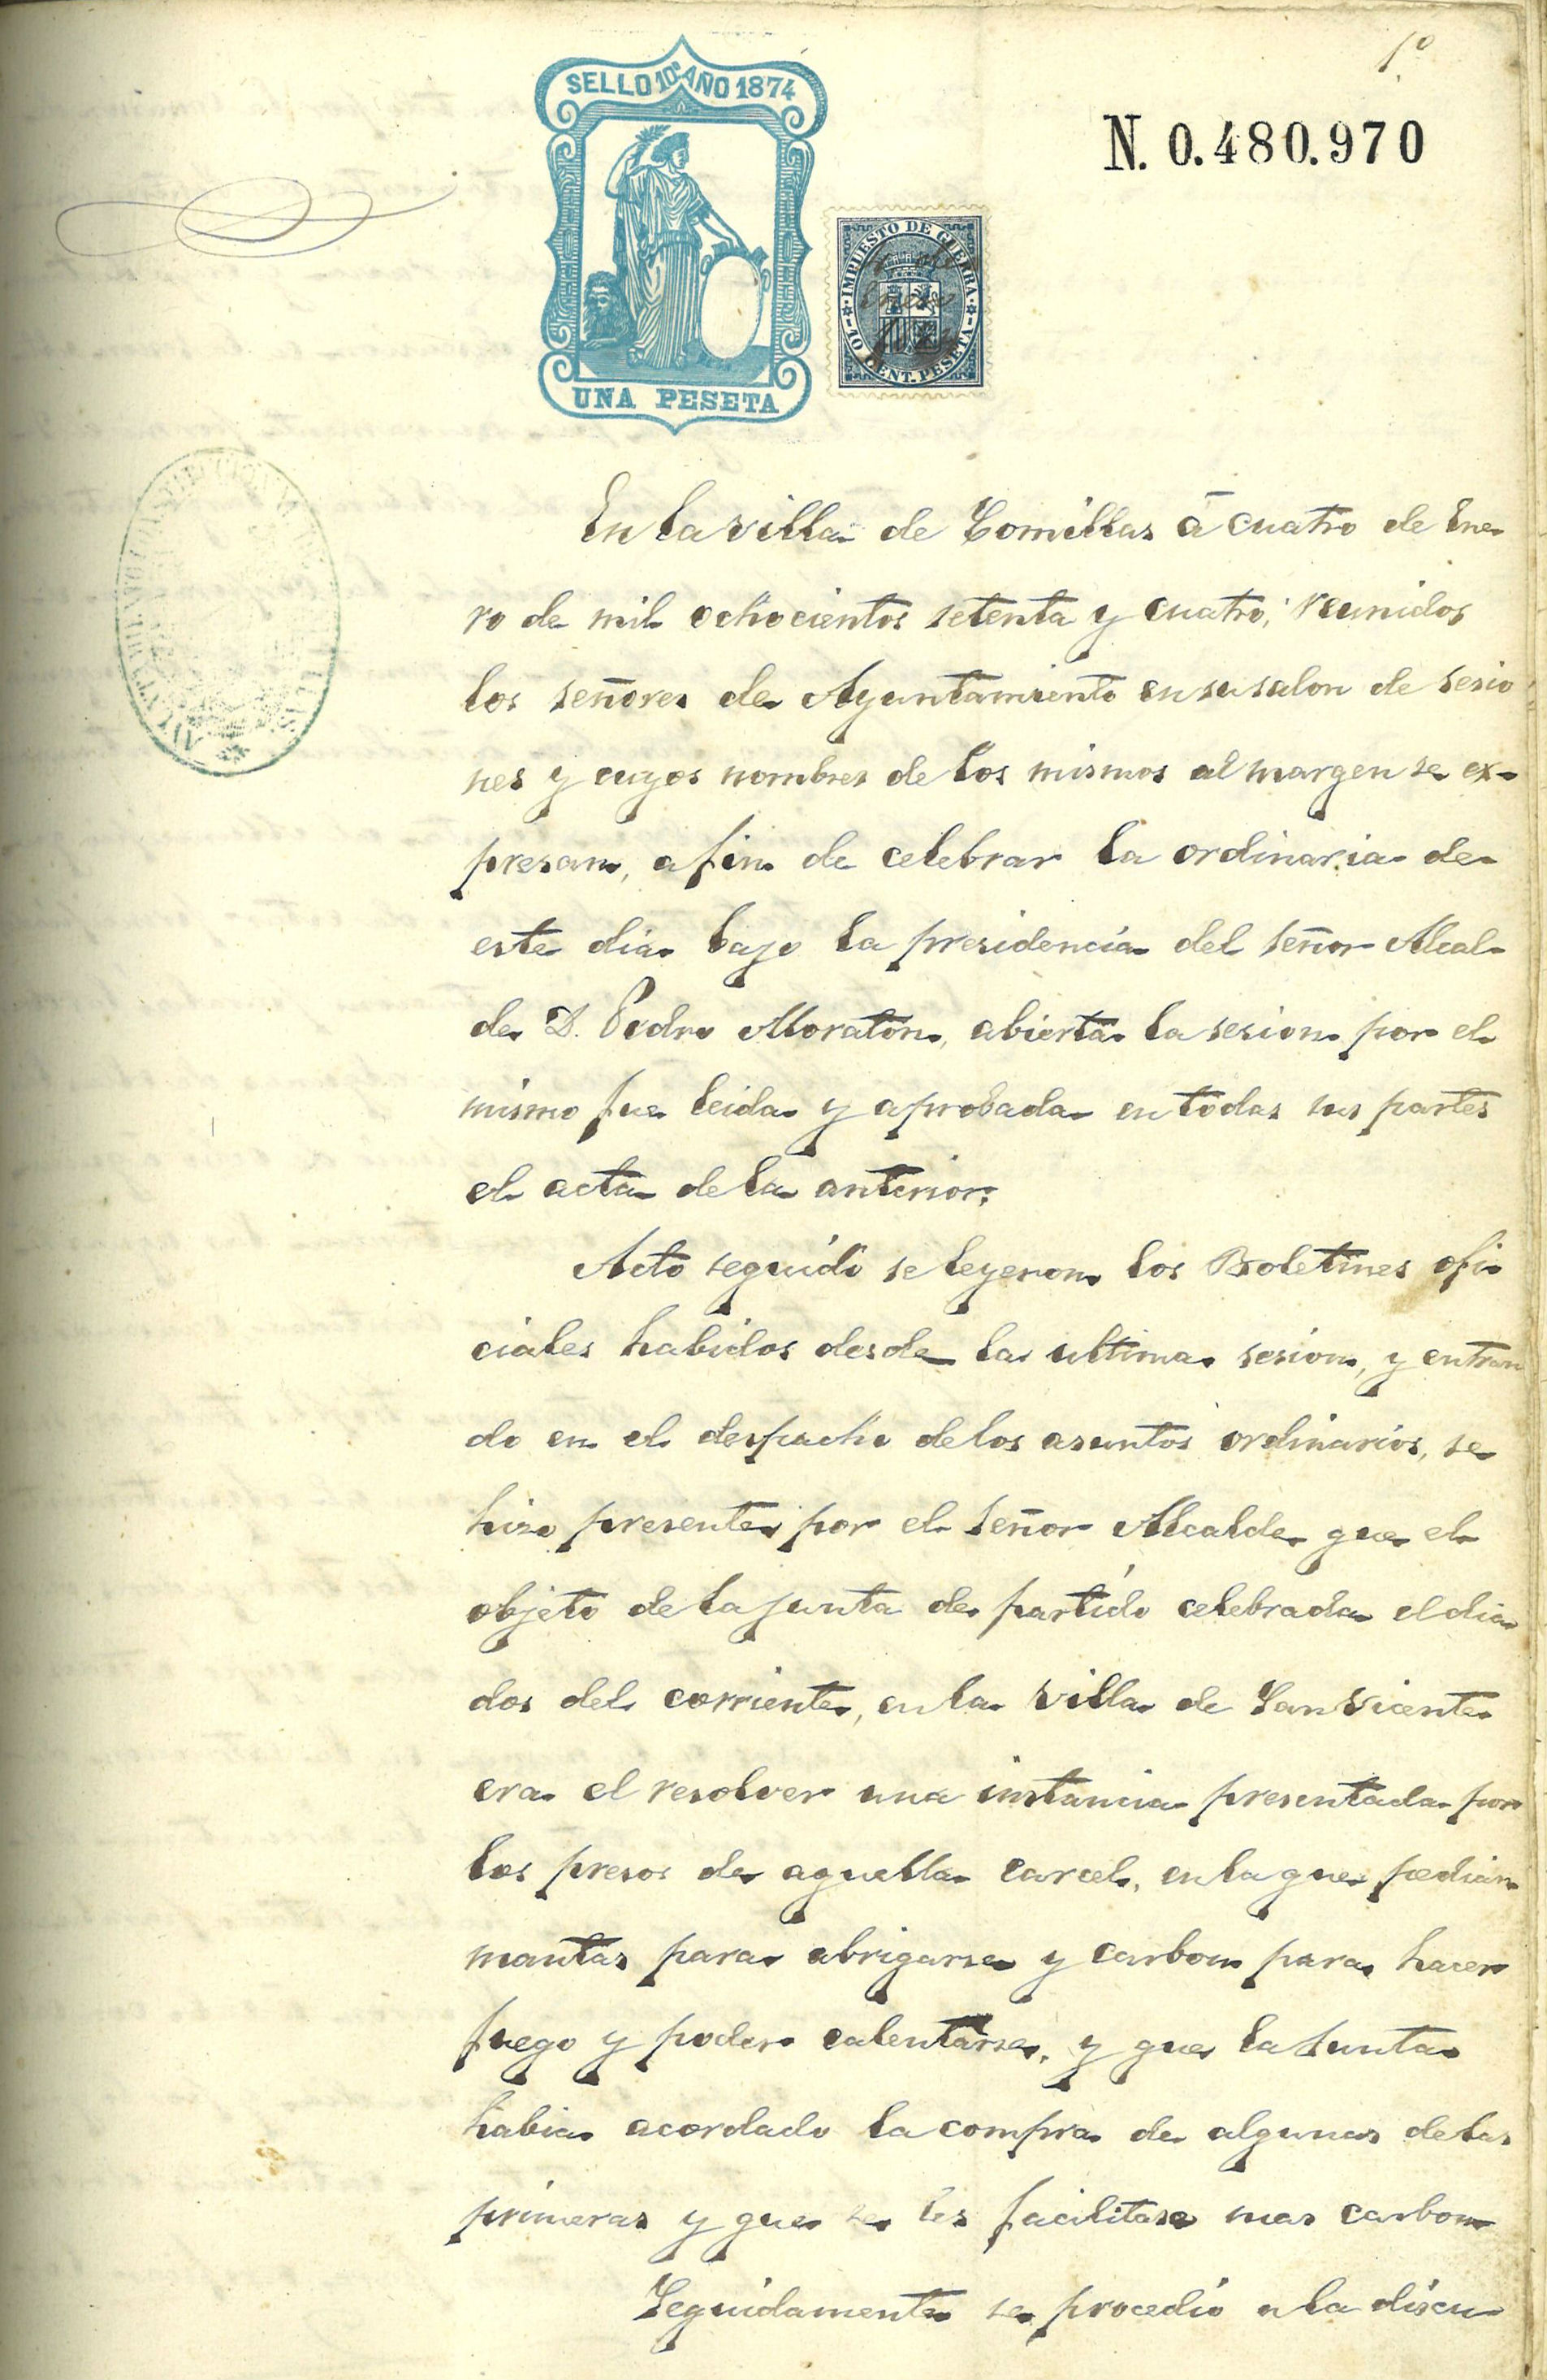 1º
SELLO 10º AÑO 1874
N. 0.480.970
IMPUESTO DE GUERRA
Enero
10 CENT. PESETA
UNA PESETA
En la villa de Comillas á cuatro de Ene-
ro de mil ochocientos setenta y cuatro; reunidos
los señores de Ayuntamiento en su salon de sesio
nes y cuyos nombres de los mismos al margen se ex-
presan, a fin de celebrar la ordinaria de
este dia bajo la presidencia del Señor Alcal-
de D. Pedro Moraton, abierta la sesion por el
mismo fue leida y aprobada en todas sus partes
el acta de la anterior;
Acto seguido se leyeron los Boletines ofi-
ciales habidos desde la ultima sesion, y entran
do en el despacho de los asuntos ordinarios, se
hizo presente por el Señor Alcalde que el
objeto de la junta de partido celebrada el dia
dos del corriente, en la villa de San Vicente
era el resolver una instancia presentada por
los presos de aquella carcel, en la que pedian
mantas para abrigarse y carbon para hacer
fuego y poder calentarse, y que la Junta
habia acordado la compra de algunas de las
primeras y que se les facilitase mas carbon
Seguidamente se procedió a la discu-